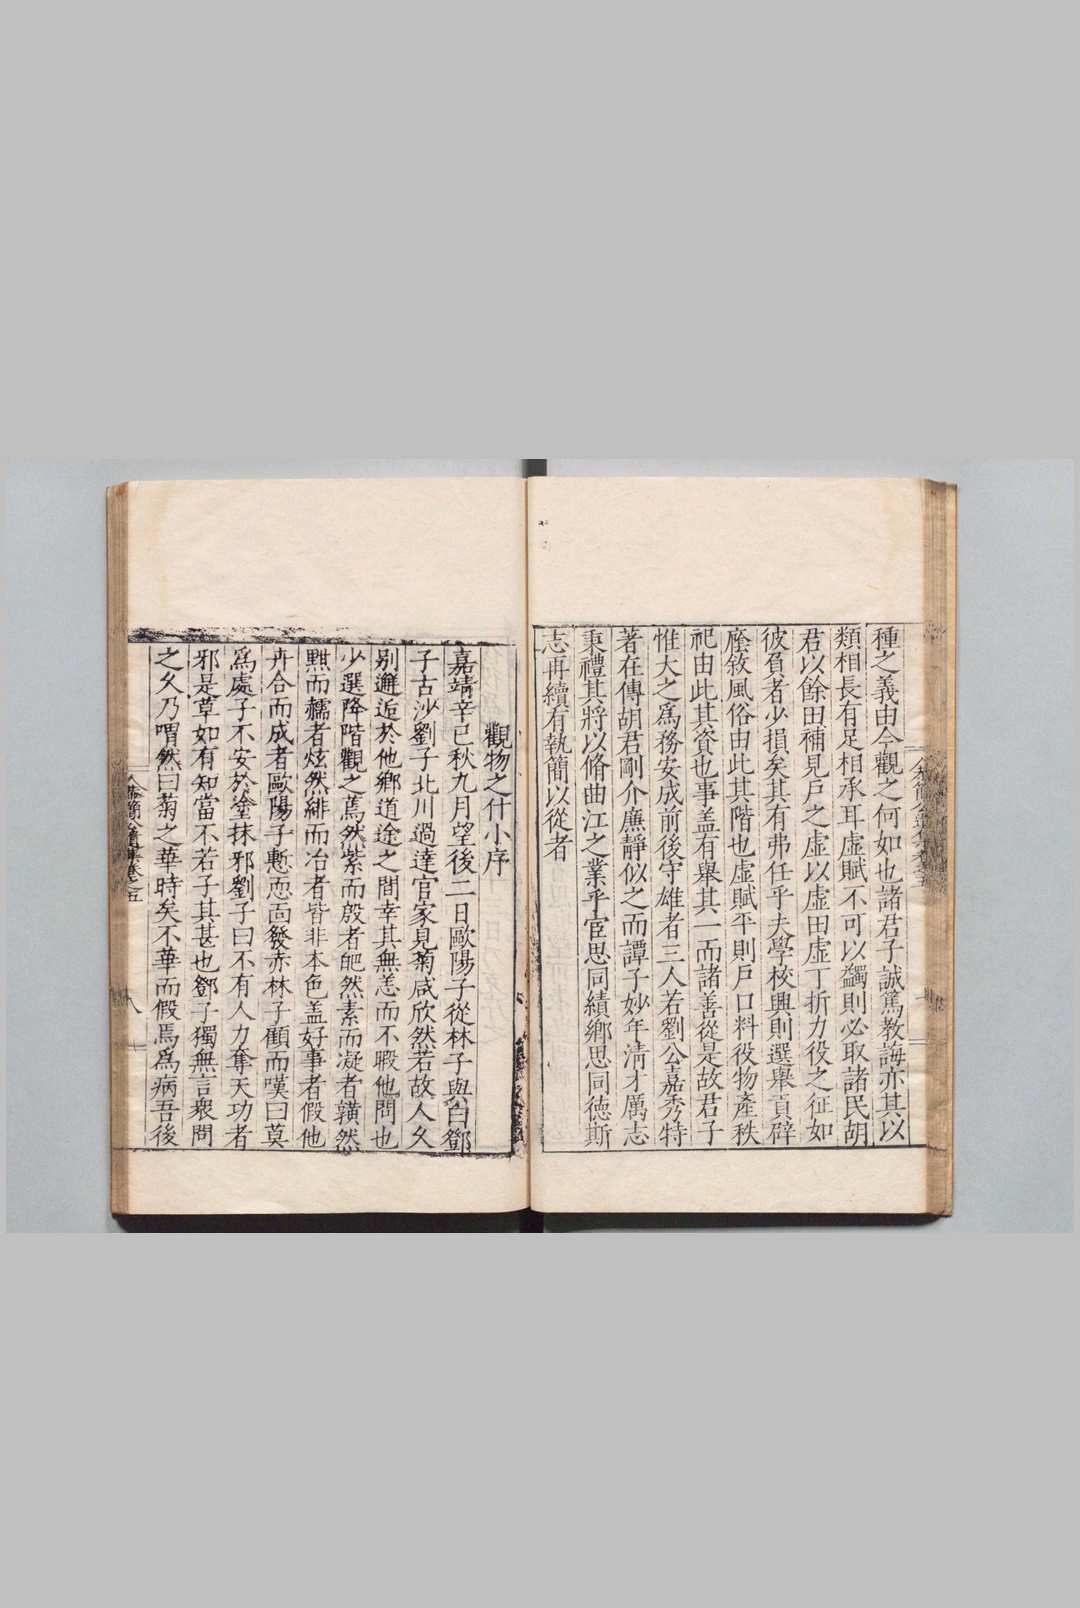 種之義由今觀之何如也諸君子誠篤教誨亦其以
類相長有足相承耳虛賦不可以蠲則必取諸民胡
君以餘田補見戶之虛以虛田虛丁折力役之征如
彼負者少損矣其有弗任乎夫學校興則選舉貢辟
廕敘風俗由此其階也虛賦平則戶口料役物產秩
祀由此其資也事盖有舉其一而諸善從是故君子
惟大之爲務安成前後守雄者三人若劉公嘉秀特
著在傳胡君剛介廉靜似之而譚子妙年清才厲志
秉禮其將以脩曲江之業乎宦思同績鄉思同德斯
志再續有執簡以從者
觀物之什小序
嘉靖辛巳秋九月望後二日歐陽子從林子與白鄧
子古沙劉子北川過達官家見菊咸欣然若故人久
别邂逅於他鄉道途之間幸其無恙而不暇他問也
少選降階觀之蔫然紫而殷者皅然素而凝者䵃然
黚而𧹞者炫然緋而冶者皆非本色盖好事者假他
卉合而成者歐陽子慙恧面發赤林子顧而嘆曰莫
爲處子不安於塗抹邪劉子曰不有人力奪天功者
邪是草如有知當不若子其甚也鄧子獨無言衆問
之久乃喟然曰菊之華時矣不華而假焉爲病吾後
恭簡公遺集卷之五
八